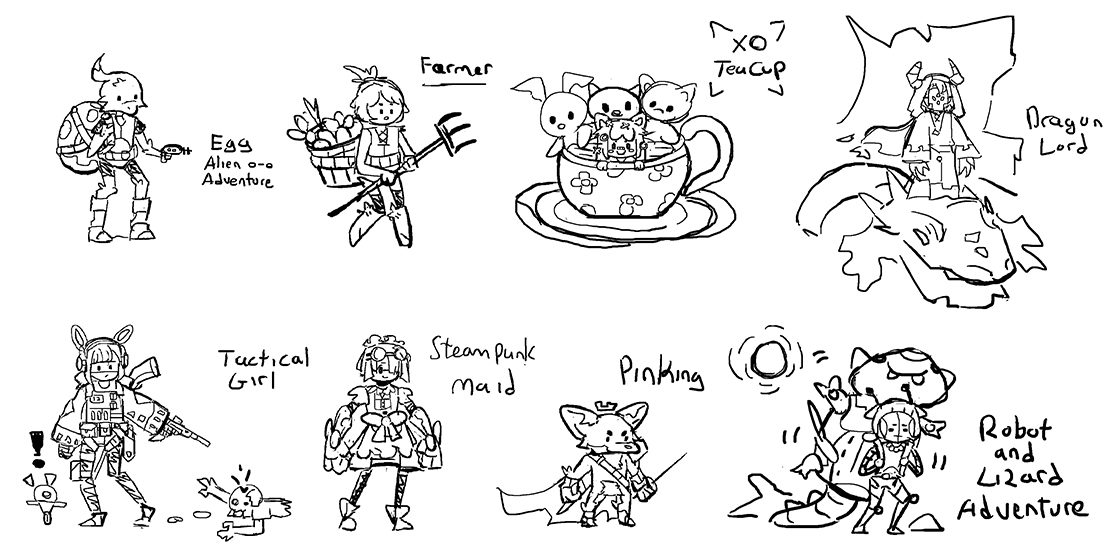 Egg
Alien o-o
Adventure
Farmer
XO
TeaCup
Dragon
Lord
Tactical
Girl
!
Steampunk
Maid
PinKing
Robot
and
Lizard
Adventure